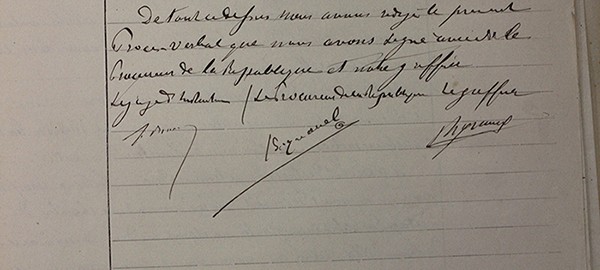 De tout ce dessus nous avons rédigé le présent
Procès-verbal que nous avons signé avec le
Procureur de la République et notre greffier
Le juge d'Instruction / Le Procureur de la République Le greffier